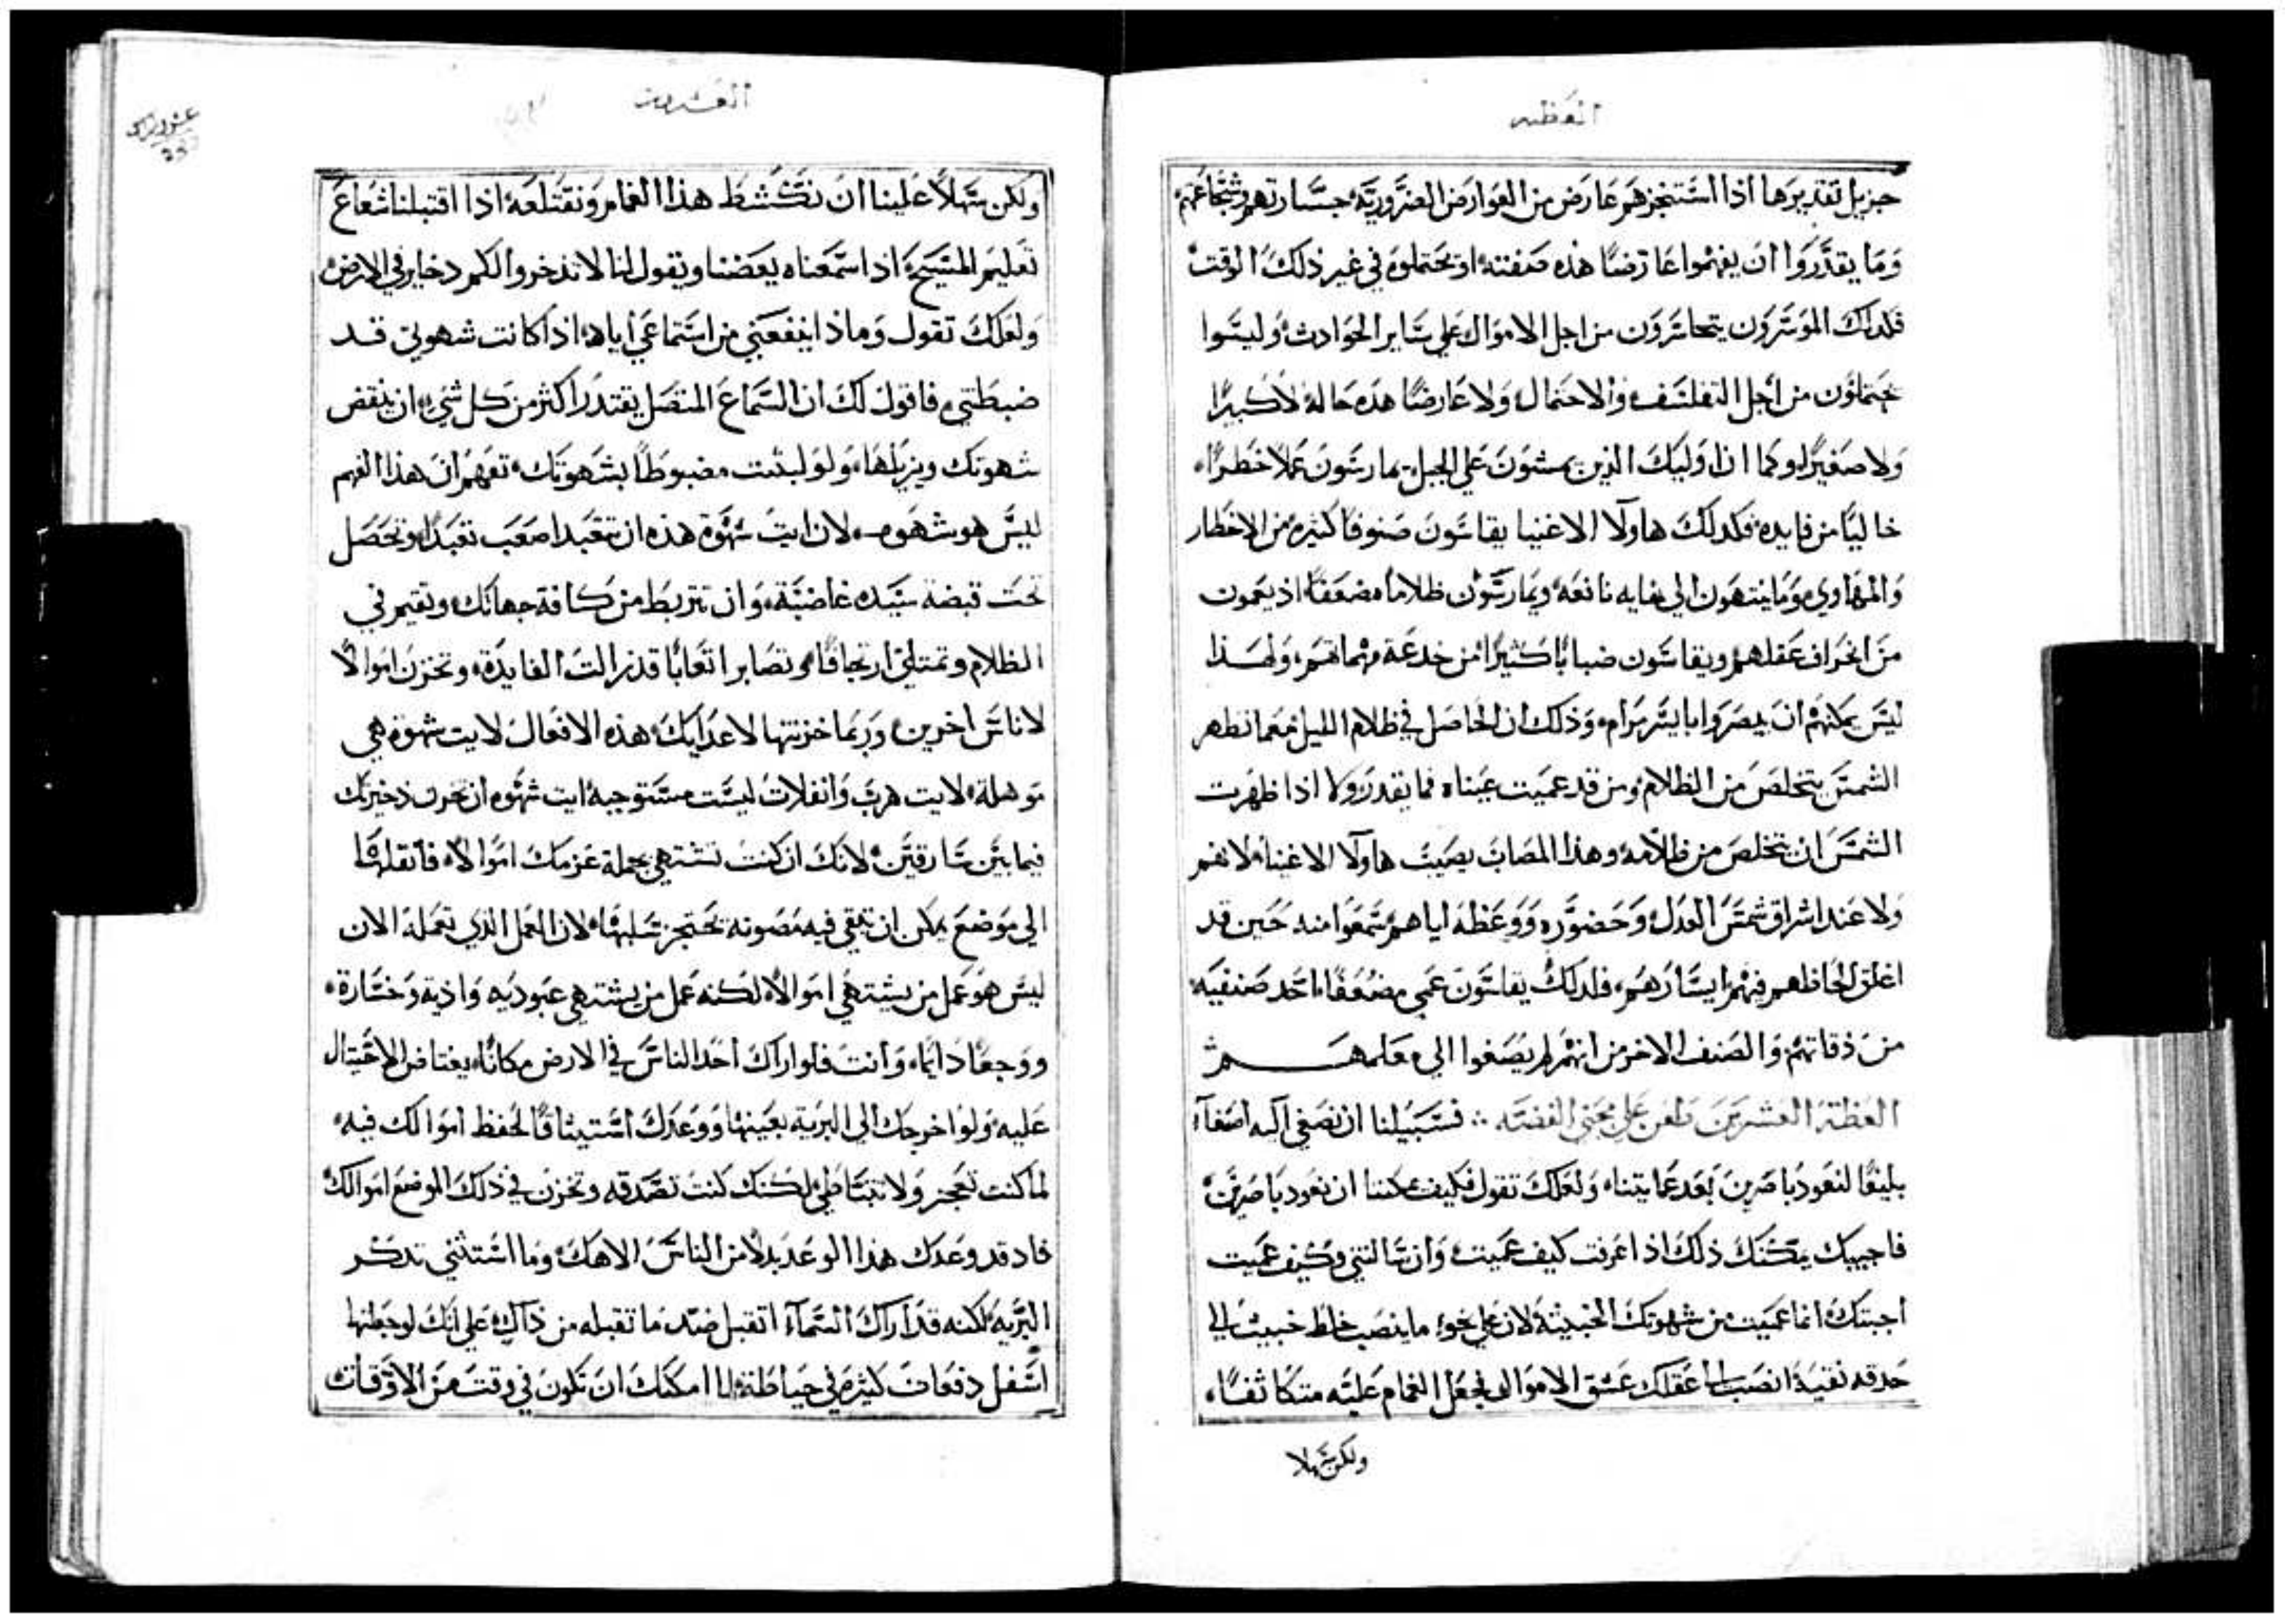 العظه
جزيل تقديرها اذا استنجزهم عارض من العوارض الضرورية جسارتهم وشجاعتهم
وما يقدروا ان يفهموا عارضا هذه صفته او يحتملوه في غير ذلك الوقت
فلذلك الموسرون يتجاسرون من اجل الاموال على ساير الحوادث وليسوا
يحتملون من اجل التفلسف والاحتمال ولا عارضا هذه حاله لا كبيرا
ولا صغيرا وكما ان اوليك الذين يمشون على الجبل يمارسون عملا خطرا
خاليا من فايده فكذلك هاولا الاغنيا يقاسون صنوفا كثيره من الاخطار
والمهاوي وما ينتهون الى غايه نافعه ويمارسون ظلاما مضعفا اذ يعمون
من انحراف عقلهم ويقاسون ضبابا كثيرا من خدعة مهماتهم ولهذا
ليس يمكنهم ان يبصروا بايسر مرام وذلك ان الحاصل في ظلام الليل مهما تظهر
الشمس يتخلص من الظلام ومن قد عميت عيناه فما يقدر ولا اذا ظهرت
الشمس ان يتخلص من ظلامه وهذا المصاب يصيب هاولا الاغنيا لانهم
ولا عند اشراق شمس العدل وحضوره ووعظه اياهم سمعوا منه حين قد
اغلق لحاظهم فهم ايسارهم فلذلك يقاسون عمى مضعفا احد صنفيه
من ذقاتهم والصنف الاخر من انهم لم يصغوا الى معلمهم
العظة العشرين طعن على محبي الفضه ؞ فسبيلنا ان نصغي اليه اصغآ
بليغا لنعود باصرين بعد عمايتنا ولعلك تقول فكيف يمكننا ان نعود باصرين
فاجيبك يمكنك ذلك اذا عرفت كيف عميت وان سالتني وكيف عميت
اجبتك انما عميت من شهوتك الخبيثة لان على نحو ما ينصب خلط خبيث الى
حدقه نقية انصب الى عقلك عشق الاموال فجعل الغمام عليه متكاثفا
ولكن سهلا
العشرون
ولكن سهلا علينا ان نكشط هذا الغمام ونقتلعه اذا اقتبلنا شعاع
تعليم المسيح اذا سمعناه يعضنا ويقول لنا لا تذخروا لكم دخاير في الارض
ولعلك تقول وماذا ينفعني من استماعي اياه اذ اكانت شهوتي قد
ضبطتني فاقول لك ان السماع المتصل يقتدر اكثر من كل شي ان ينقض
شهوتك ويزيلها ولو لبثت مضبوطا بشهوتك تفهم ان هذا الفهم
ليس هو شهوه لان ايت شهوة هذه ان تتعبد اصعب تعبدا وتحصل
تحت قبضة سيده غاضبة وان تتربط من كافة جهاتك وتقيم في
الظلام وتمتلي ارتجافا وتصابر اتعابا قد زالت الفايدة وتخزن اموالا
لاناس اخرين وربما خزنتها لاعدايك هذه الافعال لايت شهوة هي
موهلة لايت هرب وانفلات ليست مستوجبه ايت شهوه ان تخزن ذخيرتك
فيما بين سارقين لانك ان كنت تشتهي بجملة عزمك اموالا فانقلها
الى موضع يمكن ان تبقى فيه مصونه يحتجز سلبها لان العمل الذي تعمله الان
ليس هو عمل من يشتهي اموالا لكنه عمل من يشتهي عبوديه واذية وخسارة
ووجعا دايما وانت فلو اراك احد الناس في الارض مكانا يغتاض الاحتيال
عليه ولو اخرجك الى البريه بعينها ووعدك استيثاقا لحفظ اموالك فيه
لما كنت تعجز ولا تتباطى لكنك كنت تصدقه وتخزن في ذلك الموضع اموالك
فاذ قد وعدك هذا الوعد بدلا من الناس الاهك وما استثنى تذكر
البريه لكنه قد اراك السمآ اتقبل ضد ما تقبله من ذاك على انك لو جعلتها
اسفل دفعات كثيره في حياطة لما امكنك ان تكون في وقت من الاوقات